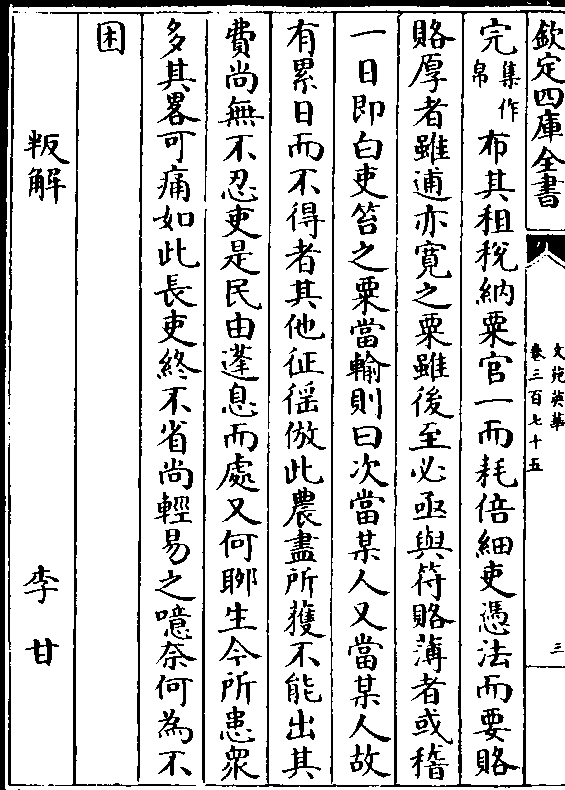 欽定四庫全書
文苑英華
卷三百七十五
三
完集作帛布其租稅納粟官一而耗倍細吏憑法而要賂
賂厚者雖逋亦寛之粟雖後至必亟與符賂薄者或稽
一日即白吏笞之粟當輸則曰次當某人又當某人故
有累日而不得者其他征徭倣此農盡所獲不能出其
費尚無不忍吏是民由蓬息而處又何聊生今所患衆
多其畧可痛如此長吏終不省尚輕易之噫奈何為不
困
叛解 李甘